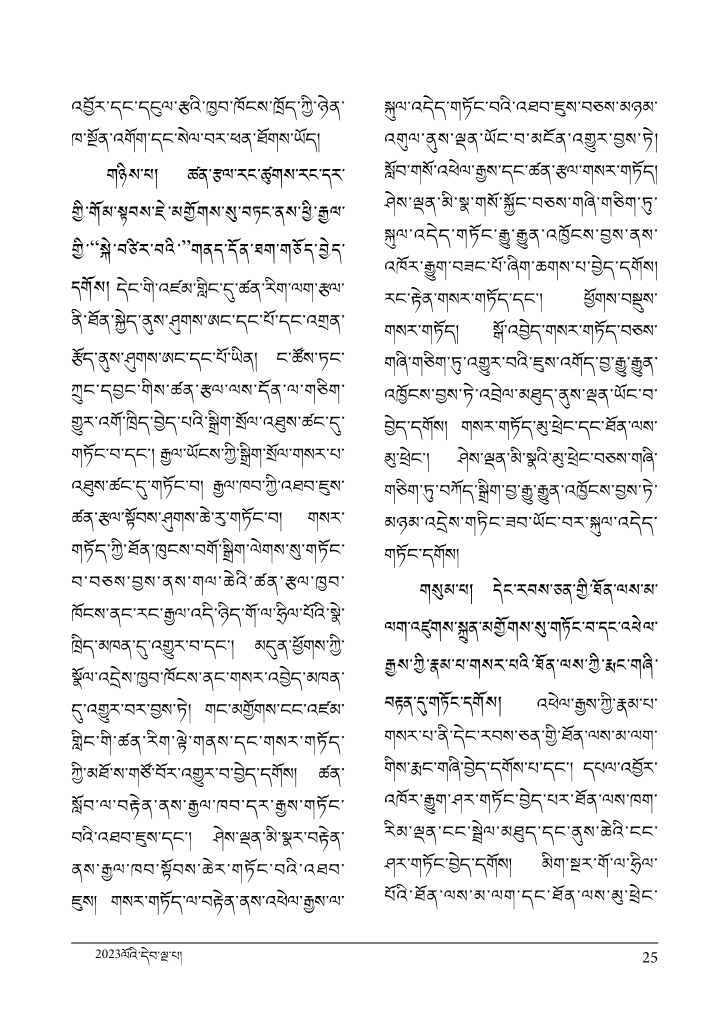 འབྱོར་དང་དངུལ་རྩའི་ཁྱབ་ཁོངས་ཁྲོད་ཀྱི་ཉེན་
ཁ་སྔོན་འགོག་དང་སེལ་བར་ཕན་ཐོགས་ཡོད།
གཉིས་པ། ཚན་རྩལ་རང་ཚུགས་རང་དར་
གྱི་གོམ་སྟབས་ཇེ་མགྱོགས་སུ་བཏང་ནས་ཕྱི་རྒྱལ་
གྱི་“སྐེ་བཙིར་བའི་”གནད་དོན་ཐག་གཅོད་བྱེད་
དགོས། དེང་གི་འཛམ་གླིང་དུ་ཚན་རིག་ལག་རྩལ་
ནི་ཐོན་སྐྱེད་ནུས་ཤུགས་ཨང་དང་པོ་དང་འགྲན་
རྩོད་ནུས་ཤུགས་ཨང་དང་པོ་ཡིན། ང་ཚོས་ཏང་
ཀྲུང་དབྱང་གིས་ཚན་རྩལ་ལས་དོན་ལ་གཅིག་
གྱུར་འགོ་ཁྲིད་བྱེད་པའི་སྒྲིག་སྲོལ་འཐུས་ཚང་དུ་
གཏོང་བ་དང་། རྒྱལ་ཡོངས་ཀྱི་སྒྲིག་སྲོལ་གསར་པ་
འཐུས་ཚང་དུ་གཏོང་བ། རྒྱལ་ཁབ་ཀྱི་འཐབ་ཇུས་
ཚན་རྩལ་སྟོབས་ཤུགས་ཆེ་རུ་གཏོང་བ། གསར་
གཏོད་ཀྱི་ཐོན་ཁུངས་བགོ་སྒྲིག་ལེགས་སུ་གཏོང་
བ་བཅས་བྱས་ནས་གལ་ཆེའི་ཚན་རྩལ་ཁྱབ་
ཁོངས་ནང་རང་རྒྱལ་འདི་ཉིད་གོ་ལ་ཧྲིལ་པོའི་སྣེ་
ཁྲིད་མཁན་དུ་འགྱུར་བ་དང་། མདུན་ཕྱོགས་ཀྱི་
སྣོལ་འདྲེས་ཁྱབ་ཁོངས་ནང་གསར་འབྱེད་མཁན་
དུ་འགྱུར་བར་བྱས་ཏེ། གང་མགྱོགས་ངང་འཛམ་
གླིང་གི་ཚན་རིག་ལྟེ་གནས་དང་གསར་གཏོད་
ཀྱི་མཐོ་ས་གཙོ་བོར་འགྱུར་བ་བྱེད་དགོས། ཚན་
སློབ་ལ་བརྟེན་ནས་རྒྱལ་ཁབ་དར་རྒྱས་གཏོང་
བའི་འཐབ་ཇུས་དང་། ཤེས་ལྡན་མི་སྣར་བརྟེན་
ནས་རྒྱལ་ཁབ་སྟོབས་ཆེར་གཏོང་བའི་འཐབ་
ཇུས། གསར་གཏོད་ལ་བརྟེན་ནས་འཕེལ་རྒྱས་ལ་
སྐུལ་འདེད་གཏོང་བའི་འཐབ་ཇུས་བཅས་མཉམ་
འགུལ་ནུས་ལྡན་ཡོང་བ་མངོན་འགྱུར་བྱས་ཏེ།
སློབ་གསོ་འཕེལ་རྒྱས་དང་ཚན་རྩལ་གསར་གཏོད།
ཤེས་ལྡན་མི་སྣ་གསོ་སྐྱོང་བཅས་གཞི་གཅིག་ཏུ་
སྐུལ་འདེད་གཏོང་རྒྱུ་རྒྱུན་འཁྱོངས་བྱས་ནས་
འཁོར་རྒྱུག་བཟང་པོ་ཞིག་ཆགས་པ་བྱེད་དགོས།
རང་རྟེན་གསར་གཏོད་དང་། ཕྱོགས་བསྡུས་
གསར་གཏོད། སྒོ་འབྱེད་གསར་གཏོད་བཅས་
གཞི་གཅིག་ཏུ་འགྱུར་བའི་ཇུས་འགོད་བྱ་རྒྱུ་རྒྱུན་
འཁྱོངས་བྱས་ཏེ་འབྲེལ་མཐུད་ནུས་ལྡན་ཡོང་བ་
བྱེད་དགོས། གསར་གཏོད་མུ་ཕྲེང་དང་ཐོན་ལས་
མུ་ཕྲེང་། ཤེས་ལྡན་མི་སྣའི་མུ་ཕྲེང་བཅས་གཞི་
གཅིག་ཏུ་བཀོད་སྒྲིག་བྱ་རྒྱུ་རྒྱུན་འཁྱོངས་བྱས་ཏེ་
མཉམ་འདྲེས་གཏིང་ཟབ་ཡོང་བར་སྐུལ་འདེད་
གཏོང་དགོས།
གསུམ་པ། དེང་རབས་ཅན་གྱི་ཐོན་ལས་མ་
ལག་འཛུགས་སྐྲུན་མགྱོགས་སུ་གཏོང་བ་དང་འཕེལ་
རྒྱས་ཀྱི་རྣམ་པ་གསར་པའི་ཐོན་ལས་ཀྱི་རྨང་གཞི་
བརྟན་དུ་གཏོང་དགོས། འཕེལ་རྒྱས་ཀྱི་རྣམ་པ་
གསར་པ་ནི་དེང་རབས་ཅན་གྱི་ཐོན་ལས་མ་ལག་
གིས་རྨང་གཞི་བྱེད་དགོས་པ་དང་། དཔལ་འབྱོར་
འཁོར་རྒྱུག་ཤར་གཏོང་བྱེད་པར་ཐོན་ལས་ཁག་
རིམ་ལྡན་ངང་སྦྲེལ་མཐུད་དང་ནུས་ཆེའི་ངང་
ཤར་གཏོང་བྱེད་དགོས། མིག་སྔར་གོ་ལ་ཧྲིལ་
པོའི་ཐོན་ལས་མ་ལག་དང་ཐོན་ལས་མུ་ཕྲེང་
2023ལོའི་དེབ་ལྔ་པ།
25